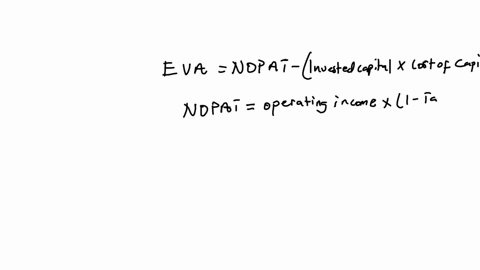 EVA = NOPAT - (Invested capital x Cost of Capi
NOPAT = operating income x (1 - Ta